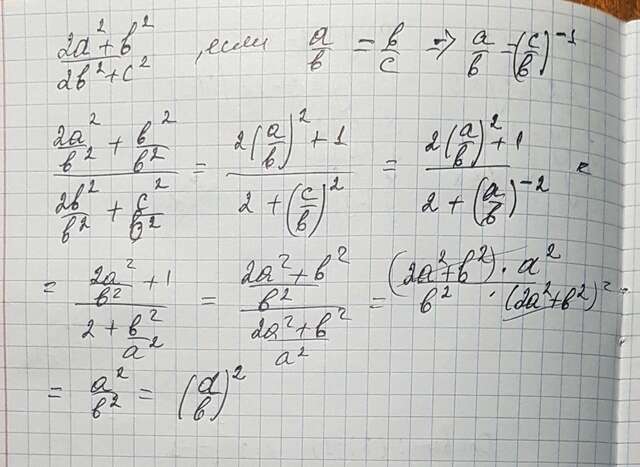 (2a²+b²)/(2b²+c²) , если a/b = b/c => a/b = (c/b)⁻¹
(2a²/b² + b²/b²)/(2b²/b² + c²/b²) = (2(a/b)² + 1)/(2 + (c/b)²) = (2(a/b)² + 1)/(2 + (a/b)⁻²) =
= (2a²/b² + 1)/(2 + b²/a²) = ((2a² + b²)/b²)/((2a² + b²)/a²) = ((2a²+b²) · a²)/(b² · (2a²+b²)) =
= a²/b² = (a/b)²